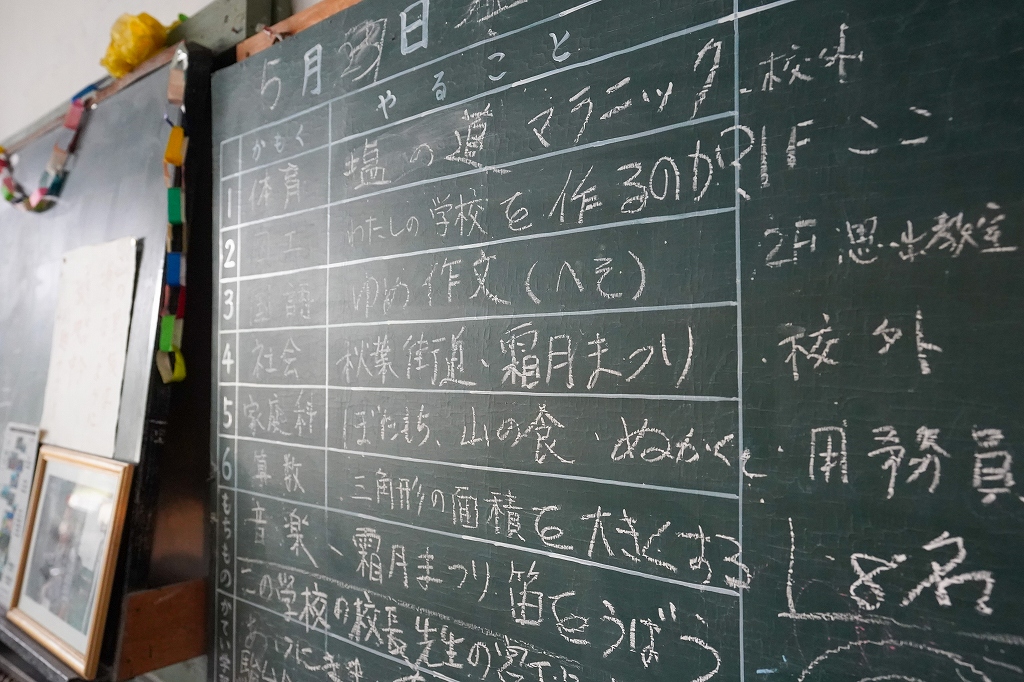 5月 日
かもく やること
1 体育 塩の道 マラニック
2 図工 わたしの学校を作るのか?
3 国語 ゆめ作文(へそ)
4 社会 秋葉街道、霜月まつり
5 家庭科 ぼたもち、山の食、ぬかくど
6 算数 三角形の面積を大きくする
もちもの 音楽、霜月まつり笛をうばう
かてい学
この学校の校長先生の
校外
1F ここ
2F 思い出教室
校外
用務員
8名